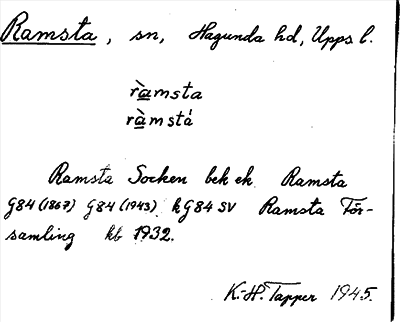 Ramsta, sn, Hagunda hd, Upps l.
ràmsta
ràmstá
Ramsta Socken bek ek. Ramsta
G84 (1867) G84 (1943) kG84 SV Ramsta För-
samling kb 1932.
K.-H. Tapper 1945.